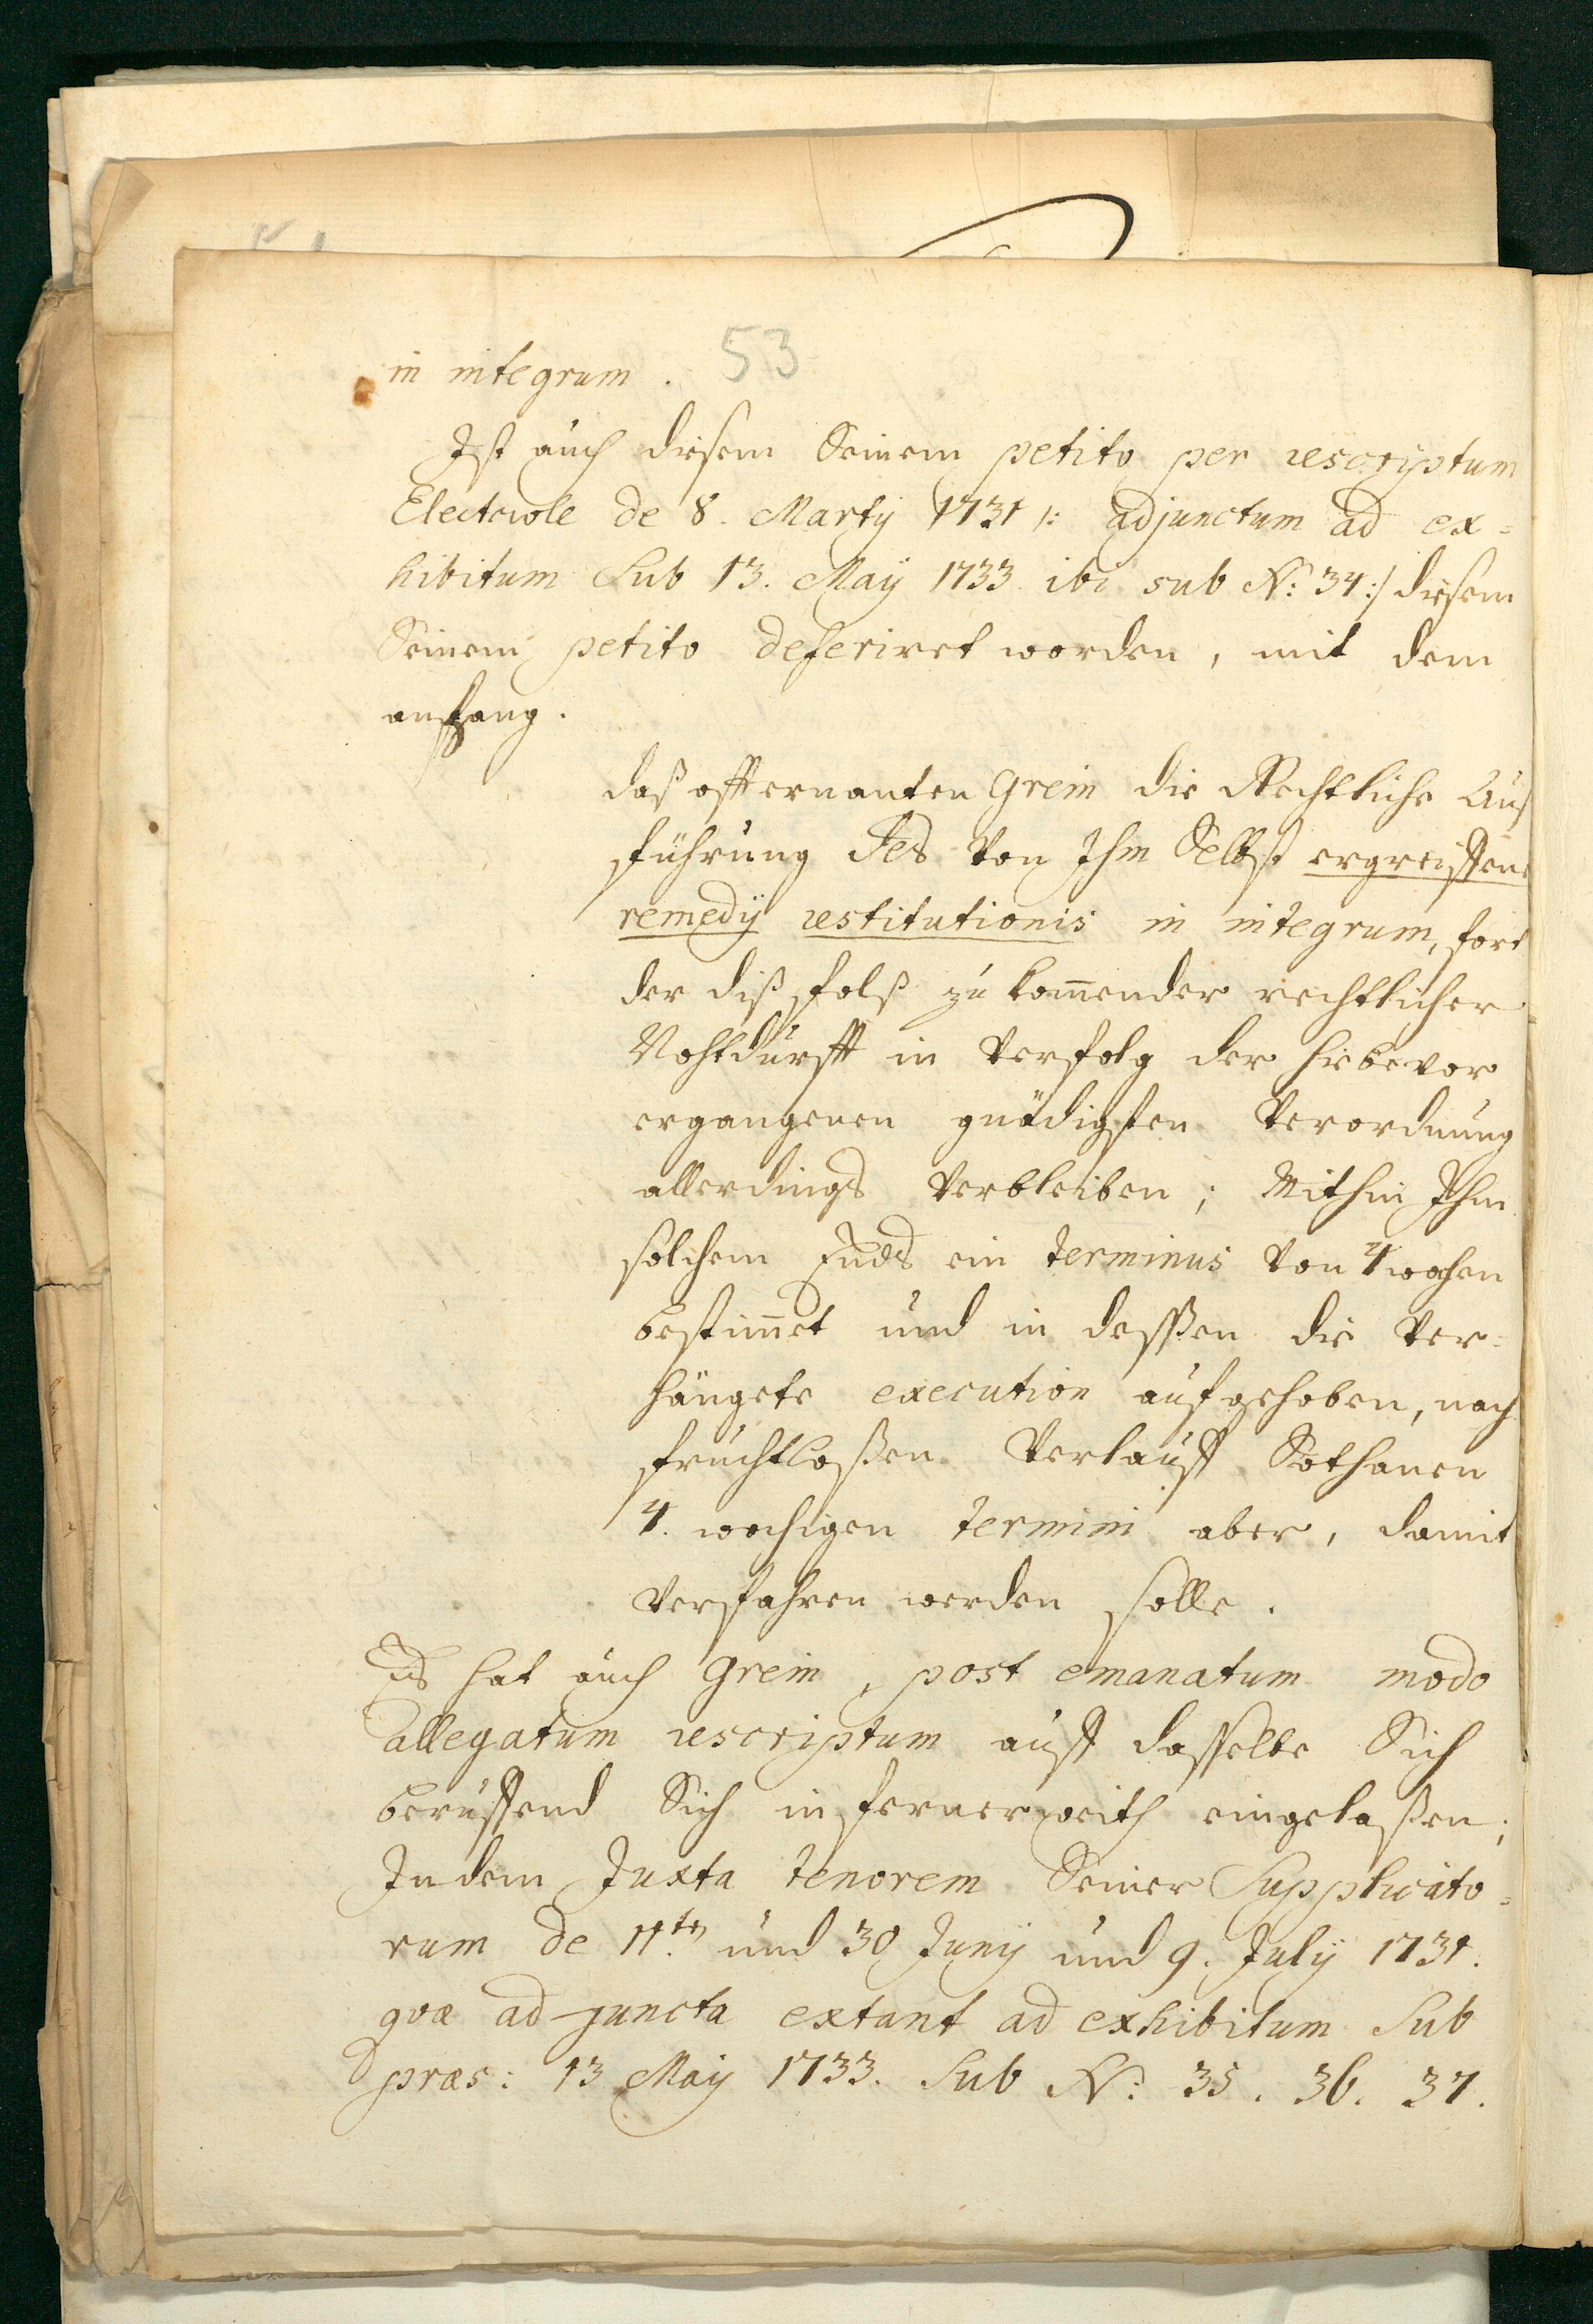 53
in integrum.
Ist auch diesem Seinem petito per rescriptum
Electorale de 8. Martÿ 1731 /: adjunctum ad ex=
hibitum Sub 13. Maÿ 1733 ibi sub N: 34:/ diesem
Seinem petito deferiret worden, mit dem
anhang.
daß offternanten Grein die Rechtliche Auß
führung des Von Ihm Selbst ergreiffene
remedÿ restitutionis in integrum, fort
der dißfalß zu kom̄ender rechtlicher
Nohtdurfft in Verfolg der hiebevor
ergangenen gnädigsten Verordnung
allerdings Verbleiben; Mithin Ihm
solchem Ends ein terminus Von 4 wochen
bestim̄et und in deßen die Ver=
hängete execution aufgehoben, nach
fruchtloßen Verlauff Sothanen
4. wochigen termini aber, damit
Verfahren werden solle.
Es hat auch Grein, post emanatum modo
allegatum rescriptum auff dasselbe Sich
beruffend Sich in ferner weith eingelaßen;
Indem Juxta tenorem Seiner Supplicato=
rum de 11ten und 30 Junÿ und 9. Julÿ 1731.
qvæ ad-juncta extant ad exhibitum Sub
præs: 13 Maÿ 1733. Sub N: 35. 36. 37.